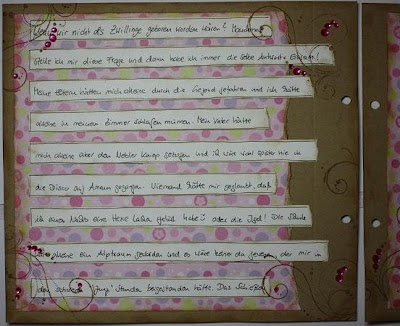 wir nicht als Zwillinge geboren worden wären? Manchmal
stelle ich mir diese Frage und dann habe ich immer die selbe Antwort:
Meine Eltern hätten mich alleine durch die Gegend gefahren und ich hätte
alleine in meinem Zimmer schlafen müssen. Mein Vater hätte
mich alleine über den Nebler getragen und ich wäre viel später nie in
die Disco auf gegangen. Niemand hätte mir geglaubt, daß
ich eines Nachts eine Hexe lachen gehört habe oder die Igel! Die Schule
wäre alleine ein Alptraum geworden und es wäre keiner da gewesen der mir in
den schweren Stunden beigestanden hätte. Das